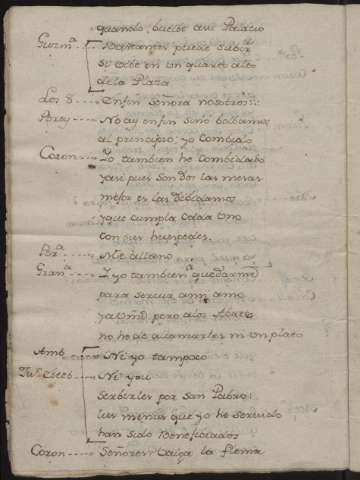 quando, buelbe a su Palacio
Guzm.ª .... Bastantes puede subir
si vibe en un quarto alto
de la Plaza
Los 8 .... Enfin señora nosotros::
Porcy .... No ay enfin sino bolbamos
al principio; yo combido
Coron .... Yo tambien he combidado
y asi pues son dos las mesas
mejor es las dibidamos
y que cumpla cada uno
con sus huespedes.
Por.ª .... Me allano
Gran.ª .... Y yo tambien quedarme
para servir a mi amo
y a Vmd pero a los Abates
no he de alcanzarles ni un plato
Amb .... Ni yo tampoco
.... Ni yo
serbirles por San Pablo:
los menus que yo he servido
han sido Beneficiados
Coron .... Señores Valga la flema